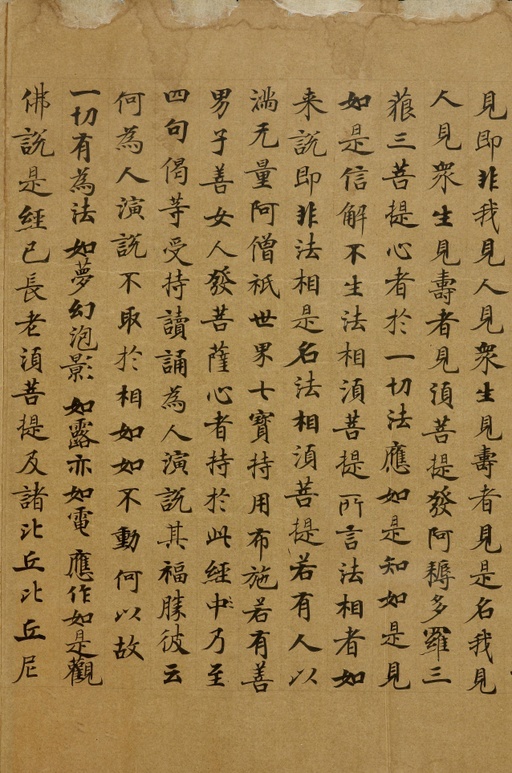 見即非我見人見衆生見壽者見是名我見
人見衆生見壽者見湏菩提發阿耨多羅三
藐三菩提心者於一切法應如是知如是見
如是信解不生法相湏菩提所言法相者如
来說即非法相是名法相湏菩提若有人以
滿无量阿僧祇世界七寶持用布施若有善
男子善女人發菩薩心者持於此經中乃至
四句偈等受持讀誦為人演說其福勝彼云
何為人演說不取於相如如不動何以故
一切有為法如夢幻泡影如露亦如電應作如是觀
佛說是經已長老湏菩提及諸比丘比丘尼